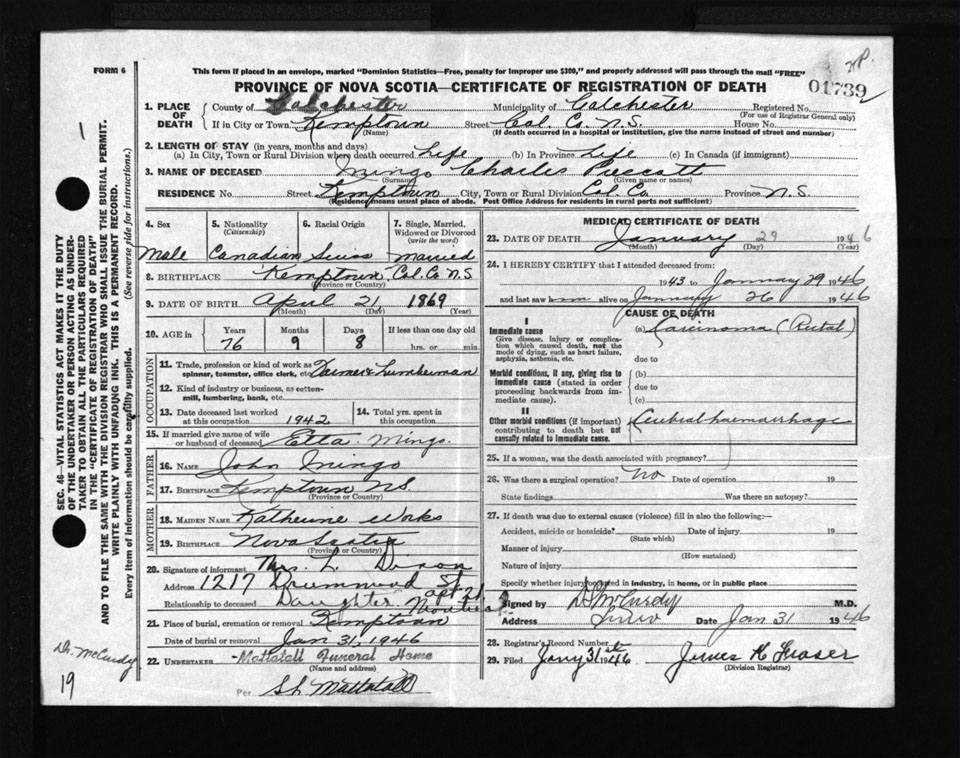 FORM 6
This form if placed in an envelope, marked "Dominion Statistics—Free, penalty for improper use $300," and properly addressed will pass through the mail "FREE"
PROVINCE OF NOVA SCOTIA—CERTIFICATE OF REGISTRATION OF DEATH
01739
1. PLACE OF DEATH County of Colchester Municipality of Colchester Registered No.
(For use of Registrar General only)
If in City or Town Kemptown Street Col. Co. N.S. House No.
(Name) (If death occurred in a hospital or institution, give the name instead of street and number)
2. LENGTH OF STAY (in years, months and days)
(a) In City, Town or Rural Division where death occurred Life (b) In Province Life (c) In Canada (if immigrant)
3. NAME OF DECEASED Mingo Charles Prescott
(Surname) (Given name or names)
RESIDENCE No. Street Kemptown City, Town or Rural Division Col. Co. Province N.S.
(Residence means usual place of abode. Post Office Address for residents in rural parts not sufficient)
4. Sex 5. Nationality (Citizenship) 6. Racial Origin 7. Single, Married, Widowed or Divorced (write the word)
Male Canadian Swiss married
8. BIRTHPLACE Kemptown, Col. Co N.S
(Province or Country)
9. DATE OF BIRTH April 21, 1869
(Month) (Day) (Year)
10. AGE in Years Months Days If less than one day old
76 9 8 hrs. or min.
OCCUPATION
11. Trade, profession or kind of work as spinner, teamster, office clerk, etc. Farmer & Lumberman
12. Kind of industry or business, as cotten-mill, lumbering, bank, etc.
13. Date deceased last worked at this occupation 1942 14. Total yrs. spent in this occupation
15. If married give name of wife or husband of deceased Etta Mingo.
FATHER
16. NAME John Mingo
17. BIRTHPLACE Kemptown N.S.
(Province or Country)
MOTHER
18. MAIDEN NAME Katherine Works
19. BIRTHPLACE Nova Scotia
(Province or Country)
20. Signature of informant Mrs. L. Dixon
Address 1217 Drummond St. apt 21
Relationship to deceased Daughter Montreal
21. Place of burial, cremation or removal Kemptown
Date of burial or removal Jan 31, 1946
22. UNDERTAKER Mattatall Funeral Home
(Name and address)
Per Mattatall
MEDICAL CERTIFICATE OF DEATH
23. DATE OF DEATH January 29 1946
(Month) (Day) (Year)
24. I HEREBY CERTIFY that I attended deceased from:
1943 to January 29 1946
and last saw him alive on January 26 1946
CAUSE OF DEATH
I
Immediate cause (a) Carcinoma (Rectal)
Give disease, injury or complication which caused death, not the mode of dying, such as heart failure, asphyxia, asthenia, etc. due to
Morbid conditions, if any, giving rise to immediate cause (stated in order proceeding backwards from immediate cause). (b) due to (c)
II
Other morbid conditions (if important) contributing to death but not causally related to immediate cause. Cerebral haemorrhage
25. If a woman, was the death associated with pregnancy?
26. Was there a surgical operation? No Date of operation 19
State findings Was there an autopsy?
27. If death was due to external causes (violence) fill in also the following:—
Accident, suicide or homicide? Date of injury 19
(State which)
Manner of injury
(How sustained)
Nature of injury
Specify whether injury occurred in industry, in home, or in public place
Signed by D S McCurdy M.D.
Address Truro Date Jan 31 1946
28. Registrar's Record Number
29. Filed Jany 31st 1946 James K Fraser
(Division Registrar)
SEC. 46—VITAL STATISTICS ACT MAKES IT THE DUTY OF THE UNDERTAKER OR PERSON ACTING AS UNDERTAKER TO OBTAIN ALL THE PARTICULARS REQUIRED IN THE "CERTIFICATE OF REGISTRATION OF DEATH" AND TO FILE THE SAME WITH THE DIVISION REGISTRAR WHO SHALL ISSUE THE BURIAL PERMIT.
WRITE PLAINLY WITH UNFADING INK. THIS IS A PERMANENT RECORD.
Every item of information should be carefully supplied. (See reverse side for instructions.)
Dr. McCurdy
19